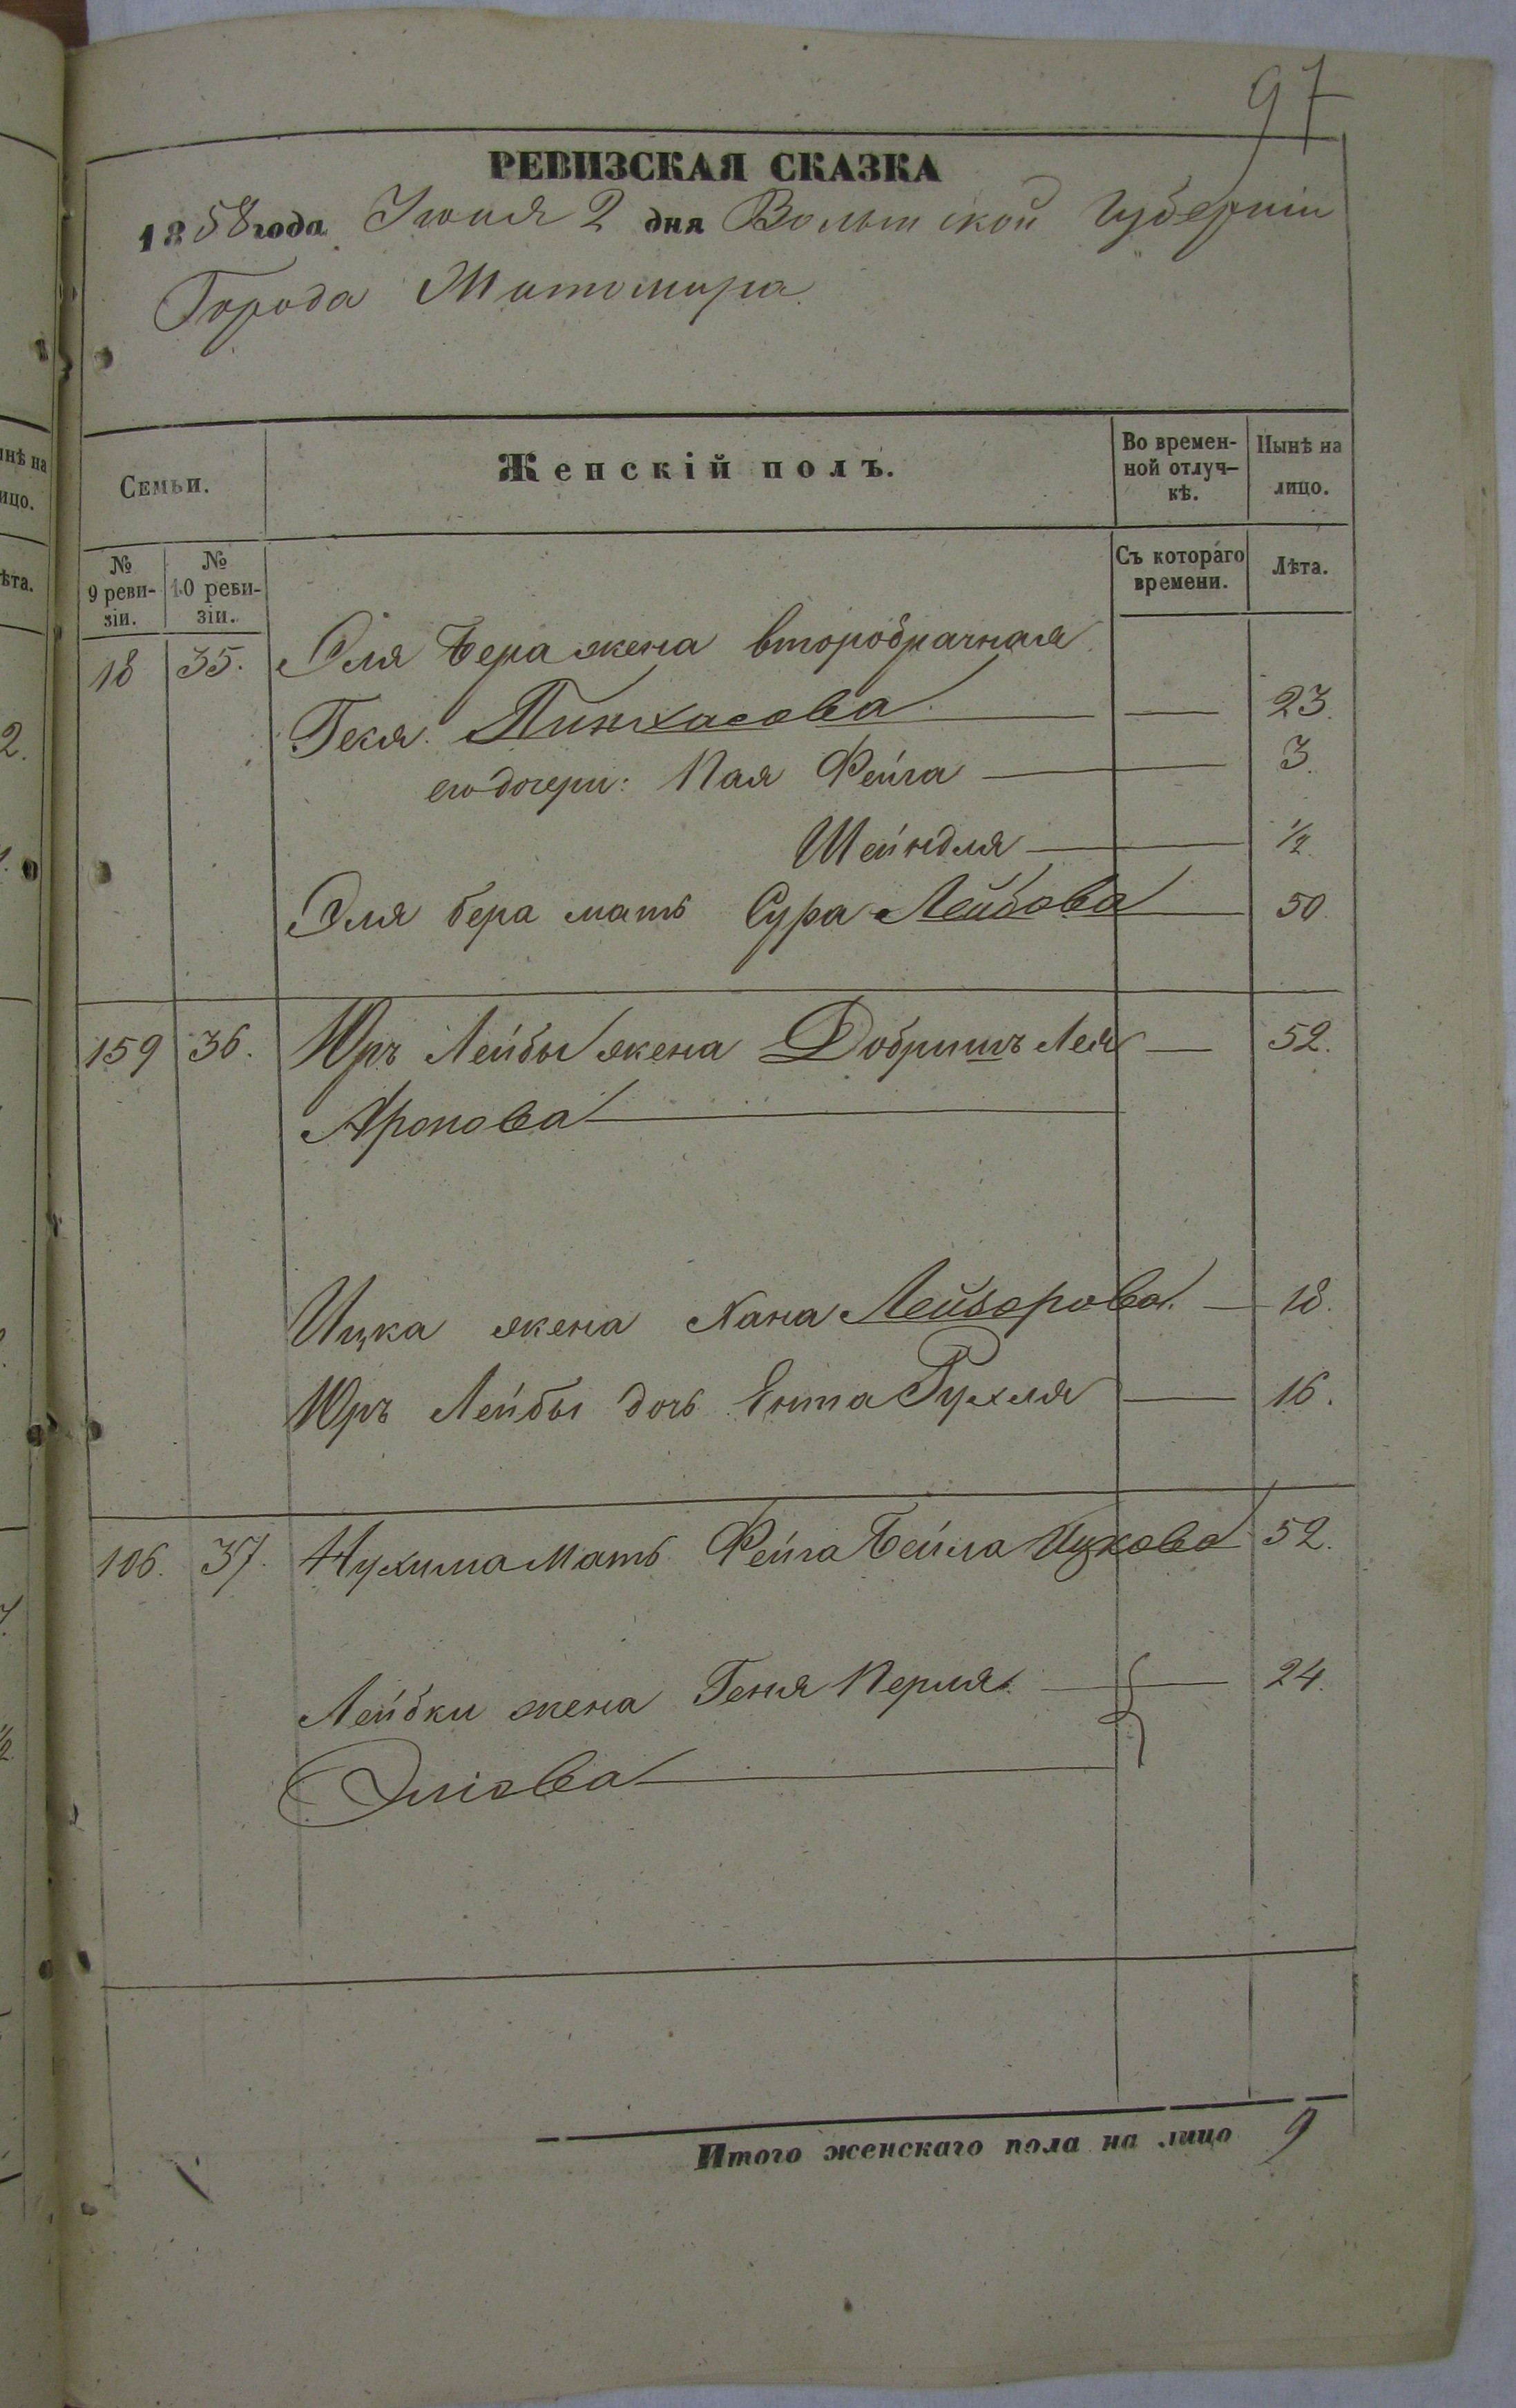 97
РЕВИЗСКАЯ СКАЗКА
1858 года Іюня 2 дня Волынской Губерніи
Города Житомира
Семьи.
Женскій полъ.
Во времен-
ной отлуч-
кѣ.
Нынѣ на
лицо.
№
9 реви-
зіи.
№
10 реви-
зіи.
Съ котораго
времени.
Лѣта.
18 35. Эля Бера жена второбрачная
Геня Пинхасова — 23.
его дочери: Пая Фейга — 3.
Шейндля — ½
Эля бера мать Сура Лейбова — 50.
159 36. Юръ Лейбы жена Добришъ Лея — 52.
Аронова
Ицка жена Хана Лейзорова. — 18.
Юръ Лейбы дочь Ента Рухля — 16.
106. 37. Нухима Мать Фейга Бейла Ицкова 52.
Лейбки жена Геня Перля — 24.
Эліова
Итого женскаго пола на лицо 9